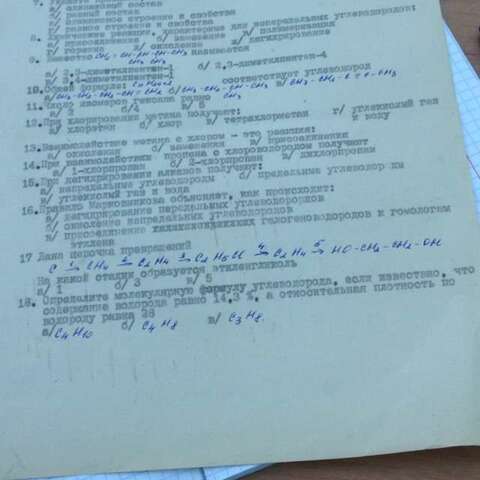 а/ одинаковый состав
б/ разный состав
в/ одинаковое строение и свойства
г/ разное строение и свойства
8. реакции, характерные для непредельных углеводородов:
а/ присоединения б/ замещения в/ полимеризация
г/ горения д/ окисление е/ дегидрирование
9. Вещество называется
а/ 2,3-диметилпентен-1 б/ 2,3-диметилпентен-4
в/ 3,4-диметилпентен-1
10. Общей формуле: соответствует углеводород
11. Число изомеров гексана равно
а/ 2 б/4 в/ 5
12. При хлорировании метана получают:
а/ хлорэтан б/ хлор в/ тетрахлорметан г/ углекислый газ
и воду
13. Взаимодействие метана с хлором - это реакция:
а/ окисления б/ замещения в/ присоединения
14. При взаимодействии пропена с хлороводородом получают
а/ 1-хлорпропан б/ 2-хлорпропан в/ дихлорпропан
15. При дегидрировании алканов получают:
а/ непредельные углеводороды б/ предельные углеводороды
в/ углекислый газ и вода
16. Правило Марковникова объясняет, как происходит:
а/ дегидрирование предельных углеводородов
б/ окисление непредельных углеводородов
в/ присоединение галогеноводородов к гомологам
этилена
17 Дана цепочка превращений
C 1→ CH4 2→ C2H4 3→ C2H5Cl 4→ C2H4 5→ HO-CH2-CH2-OH
На какой стадии образуется этиленгликоль
а/ 1 б/ 3 в/ 5
18. Определите молекулярную формулу углеводорода, если известно, что
содержание водорода равно 14,3 %, а относительная плотность по
водороду равна 28
а/ C4H10 б/ C4H8 в/ C3H8.